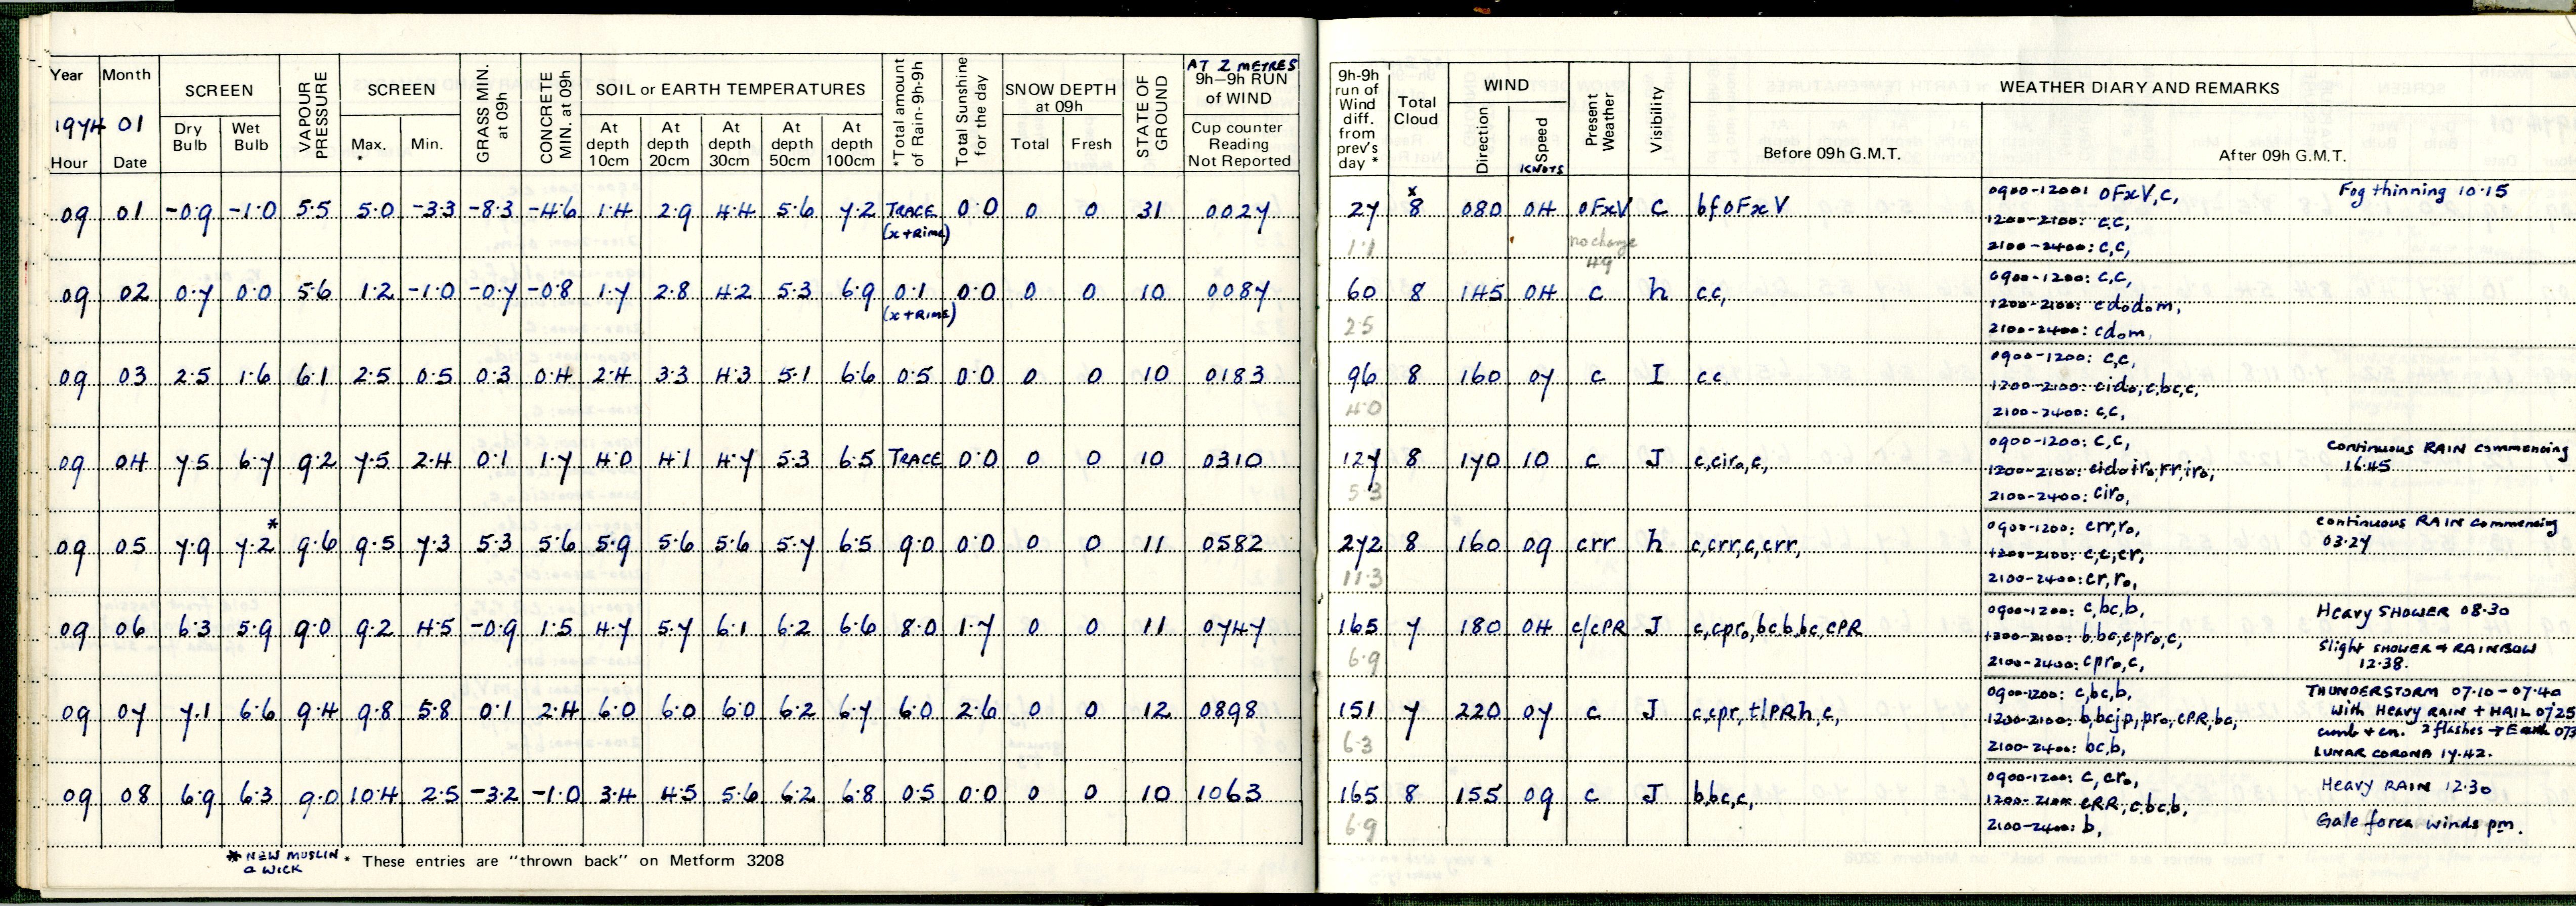 Year Month SCREEN VAPOUR PRESSURE SCREEN GRASS MIN. at 09h CONCRETE MIN. at 09h SOIL or EARTH TEMPERATURES *Total amount of Rain-9h-9h Total Sunshine for the day SNOW DEPTH at 09h STATE OF GROUND AT 2 METRES 9h–9h RUN of WIND
1974 01
Hour Date Dry Bulb Wet Bulb Max. * Min. At depth 10cm At depth 20cm At depth 30cm At depth 50cm At depth 100cm Total Fresh Cup counter Reading Not Reported
09 01 -0.9 -1.0 5.5 5.0 -3.3 -8.3 -4.6 1.4 2.9 4.4 5.6 7.2 TRACE 0.0 0 0 31 0027
(x+Rime)
09 02 0.7 0.0 5.6 1.2 -1.0 -0.7 -0.8 1.7 2.8 4.2 5.3 6.9 0.1 0.0 0 0 10 0087
(x+Rime)
09 03 2.5 1.6 6.1 2.5 0.5 0.3 0.4 2.4 3.3 4.3 5.1 6.6 0.5 0.0 0 0 10 0183
09 04 7.5 6.7 9.2 7.5 2.4 0.1 1.7 4.0 4.1 4.7 5.3 6.5 TRACE 0.0 0 0 10 0310
09 05 7.9 7.2* 9.6 9.5 7.3 5.3 5.6 5.9 5.6 5.6 5.7 6.5 9.0 0.0 0 0 11 0582
09 06 6.3 5.9 9.0 9.2 4.5 -0.9 1.5 4.7 5.7 6.1 6.2 6.6 8.0 1.7 0 0 11 0747
09 07 7.1 6.6 9.4 9.8 5.8 0.1 2.4 6.0 6.0 6.0 6.2 6.7 6.0 2.6 0 0 12 0898
09 08 6.9 6.3 9.0 10.4 2.5 -3.2 -1.0 3.4 4.5 5.6 6.2 6.8 0.5 0.0 0 0 10 1063
* NEW MUSLIN
a WICK
* These entries are "thrown back" on Metform 3208
9h-9h run of Wind diff. from prev's day * Total Cloud WIND Present Weather Visibility WEATHER DIARY AND REMARKS
Direction Speed KNOTS Before 09h G.M.T. After 09h G.M.T.
27 8* 080 04 oFxV C bfoFxV
1.1 no change 49
0900-1200: oFxV,c, Fog thinning 10.15
1200-2100: c.c,
2100-2400: c,c,
60 8 145 04 c h c.c,
2.5
0900-1200: c,c,
1200-2100: cdodom,
2100-2400: cdom,
96 8 160 07 c I c.c
4.0
0900-1200: c,c,
1200-2100: cido,c,bc,c,
2100-2400: c,c,
127 8 170 10 c J c,ciro,c,
5.3
0900-1200: c,c, Continuous RAIN commencing
1200-2100: cidoiro,rr,iro, 16.45
2100-2400: ciro,
272 8 160 09 crr h c,crr,c,crr,
11.3
0900-1200: crr,ro, continuous RAIN commencing
1200-2100: c,c,cr, 03.27
2100-2400: cr,ro,
165 7 180 04 c/cPR J c,cpro,bc,b,bc,cPR
6.9
0900-1200: c,bc,b, Heavy SHOWER 08.30
1200-2100: b,bc,cpro,c, Slight SHOWER + RAINBOW
2100-2400: cpro,c, 12.38.
151 7 220 07 c J c,cpr,tlPRh,c,
6.3
0900-1200: c,bc,b, THUNDERSTORM 07.10 - 07.40
1200-2100: b,bcjp,pro,cPR,bc, with Heavy RAIN + HAIL 0725
2 flashes → Earth 073
2100-2400: bc,b, LUNAR CORONA 17.42.
165 8 155 09 c J b,bc,c,
6.9
0900-1200: c,cro, Heavy RAIN 12.30
1200-2100: cRR,c,bc,b,
2100-2400: b, Gale force winds pm.